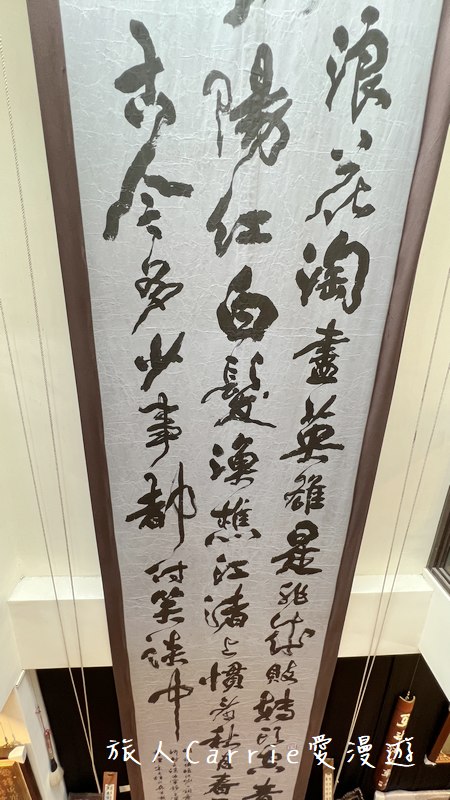 浪花淘盡英雄是非成敗轉頭空青
陽紅白髮漁樵江渚上慣看秋月春
古今多少事都付笑談中
旅人Carrie愛漫遊